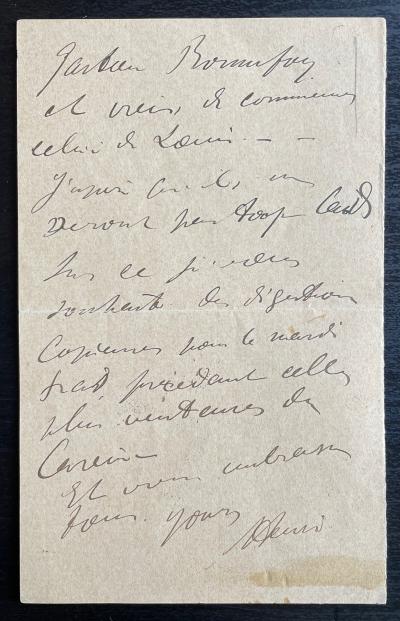 Gaston Bonnefoy
et viens de commencer
celui de Louis. — —
J'espère qu'ils ne
seront pas trop laids
Sur ce je vous
souhaite des digestions
Copieuses pour le mardi
gras précédant celles
plus venteuses du
Careme
Et vous embrasse
tous. yours
Henri